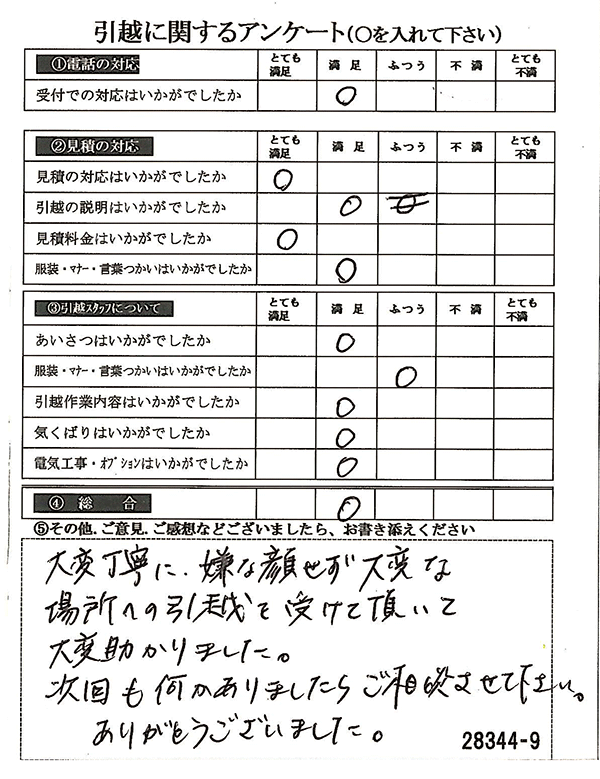 引越に関するアンケート(○を入れて下さい)
①電話の対応 とても満足 満足 ふつう 不満 とても不満
受付での対応はいかがでしたか ○
②見積の対応 とても満足 満足 ふつう 不満 とても不満
見積の対応はいかがでしたか ○
引越の説明はいかがでしたか ○
見積料金はいかがでしたか ○
服装・マナー・言葉つかいはいかがでしたか ○
③引越スタッフについて とても満足 満足 ふつう 不満 とても不満
あいさつはいかがでしたか ○
服装・マナー・言葉つかいはいかがでしたか ○
引越作業内容はいかがでしたか ○
気くばりはいかがでしたか ○
電気工事・オプションはいかがでしたか ○
④ 総 合 ○
⑤その他.ご意見.ご感想などございましたら、お書き添えください
大変丁寧に、嫌な顔せず大変な
場所への引越を受けて頂いて
大変助かりました。
次回も何かありましたらご相談させて下さい。
ありがとうございました。
28344-9